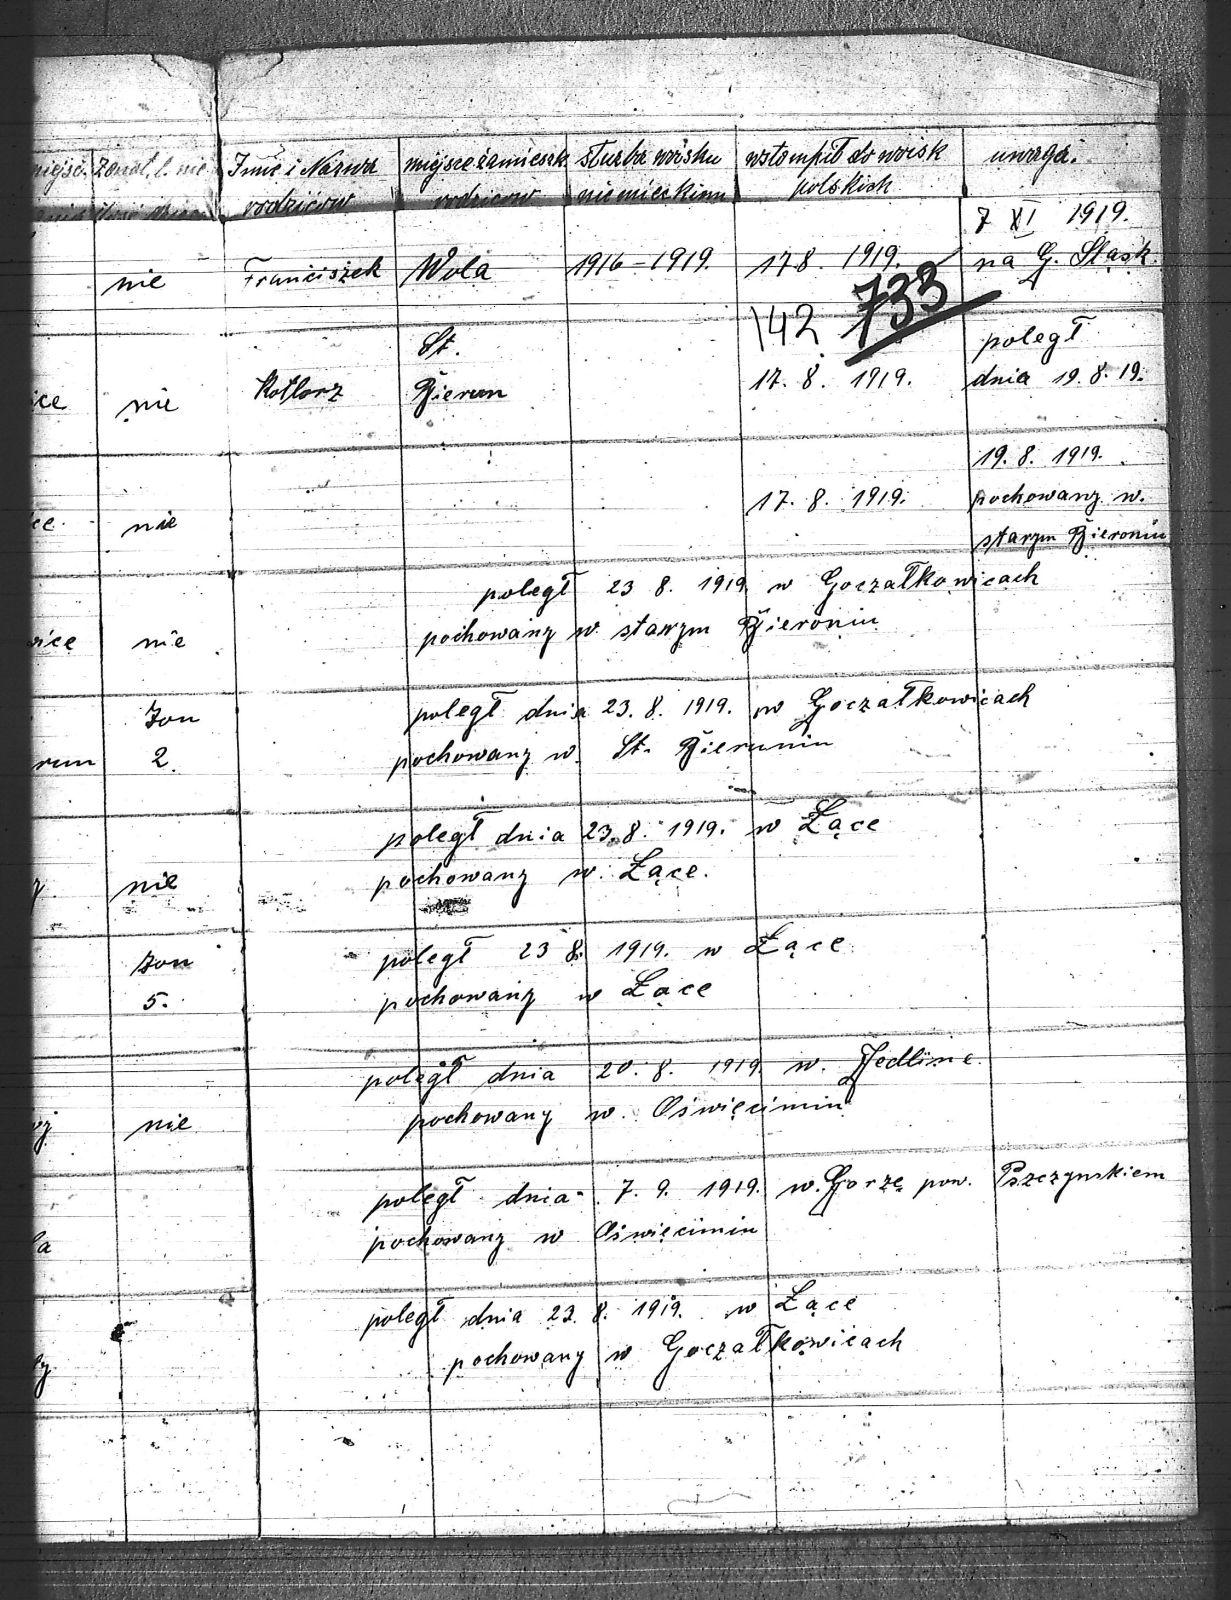 żonat. l. nie Imie i Naswa miejsce zamieszk. służba woisku wstompił do woisk uwaga.
rodzicow rodzicow niemieckim polskich
7 XI 1919.
nie Franciszek Wola 1916-1919. 17 8. 1919. na G. Sląsk
142 733
St. poległ
ice nie Kotlorz Bierun 17. 8. 1919. dnia 19. 8. 19.
19. 8. 1919.
ce. nie 17. 8. 1919. pochowany w.
starym Bieroniu
poległ 23 8. 1919. w Goczałkowicach
wice nie pochowany w starym Bieroniu
Zon poległ dnia 23. 8. 1919. w Goczałkowicach
run 2. pochowany w. St. Bieruniu
poległ dnia 23. 8. 1919. w Łące
nie pochowany w. Łące.
zon poległ 23 8. 1919. w Łące
5. pochowany w Łące
poległ dnia 20. 8. 1919. w. Jedlinie.
nie pochowany w. Oświęcimiu
poległ dnia 7. 9. 1919. w. Gorze pow. Pszczynskiem
la pochowany w Oświęcimiu
poległ dnia 23. 8. 1919. w Łące
pochowany w Goczałkowicach